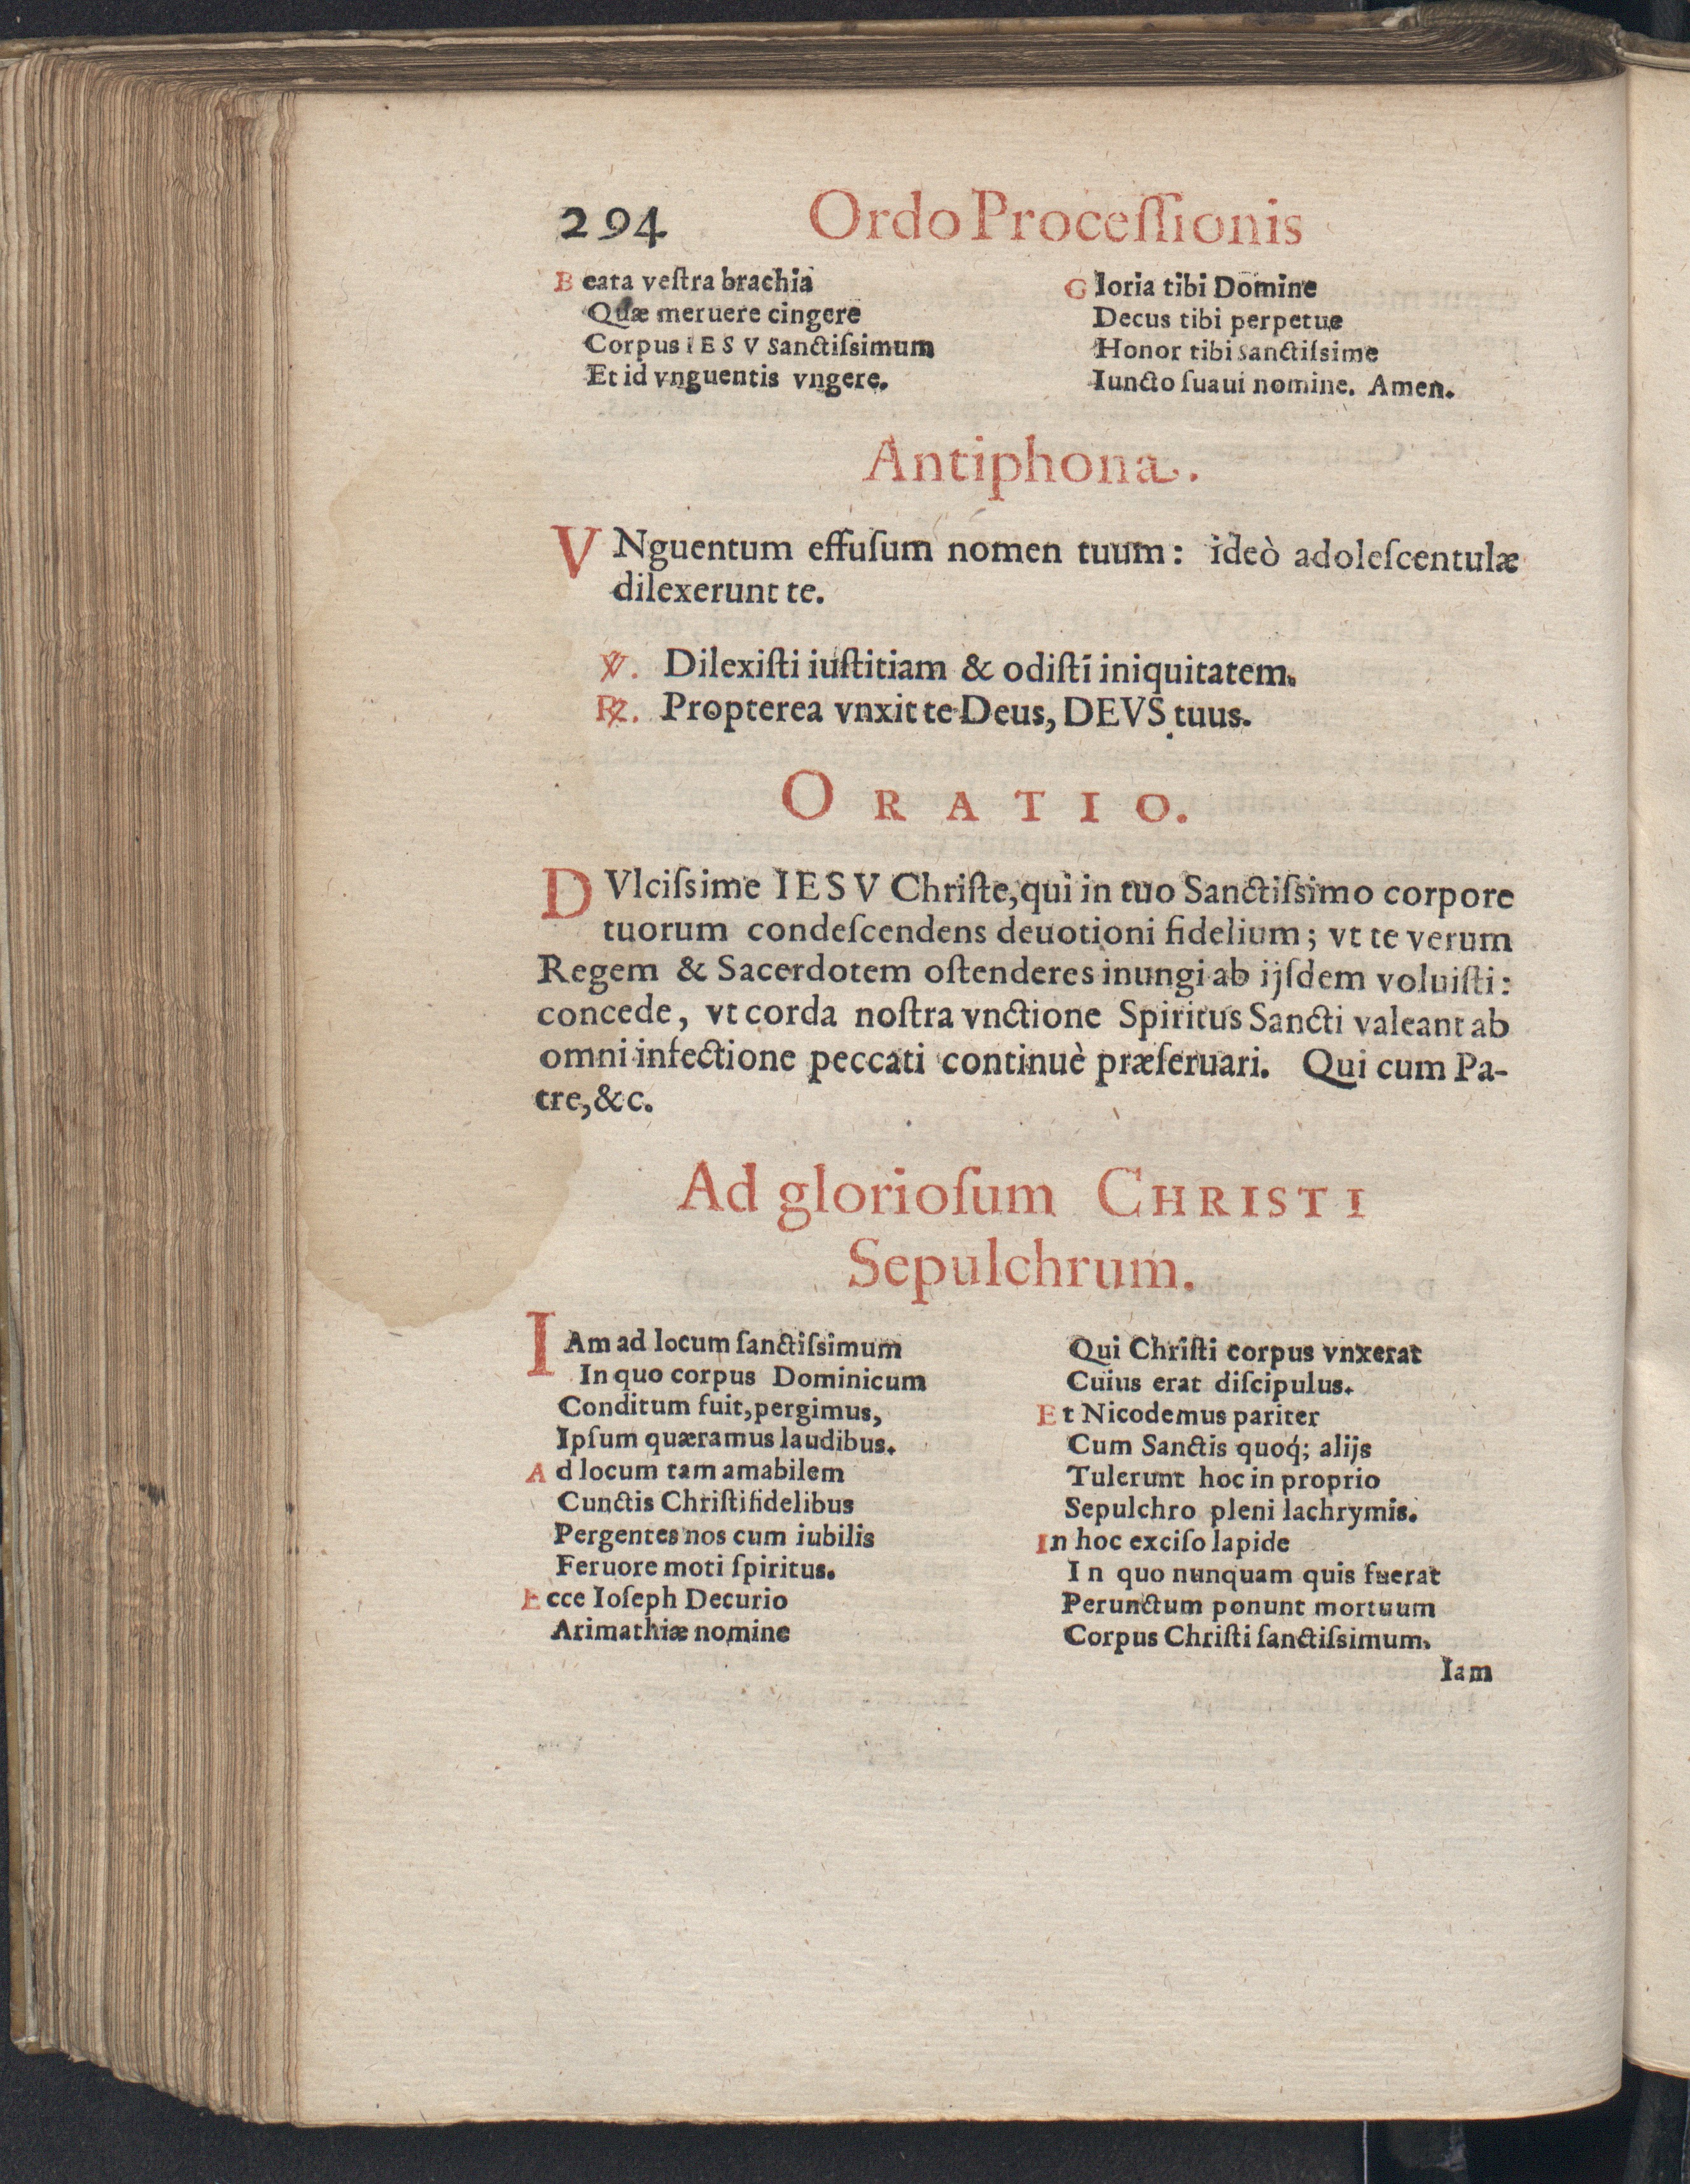 294 Ordo Proceſſionis
Beata veſtra brachia
Quæ meruere cingere
Corpus IESV Sanctiſsimum
Et id vnguentis vngere.
Gloria tibi Domine
Decus tibi perpetue
Honor tibi Sanctiſsime
Iuncto ſuaui nomine. Amen.
Antiphona.
VNguentum effuſum nomen tuum: ideò adoleſcentulæ
dilexerunt te.
℣. Dilexiſti iuſtitiam & odiſti iniquitatem.
℟. Propterea vnxit te Deus, DEVS tuus.
ORATIO.
DVlciſsime IESV Chriſte, qui in tuo Sanctiſsimo corpore
tuorum condeſcendens deuotioni fidelium; vt te verum
Regem & Sacerdotem oſtenderes inungi ab ijſdem voluiſti:
concede, vt corda noſtra vnctione Spiritus Sancti valeant ab
omni infectione peccati continuè præſeruari. Qui cum Pa-
tre, &c.
Ad glorioſum CHRISTI
Sepulchrum.
IAm ad locum ſanctiſsimum
In quo corpus Dominicum
Conditum fuit, pergimus,
Ipſum quæramus laudibus.
Ad locum tam amabilem
Cunctis Chriſtifidelibus
Pergentes nos cum iubilis
Feruore moti ſpiritus.
Ecce Ioſeph Decurio
Arimathiæ nomine
Qui Chriſti corpus vnxerat
Cuius erat diſcipulus.
Et Nicodemus pariter
Cum Sanctis quoq́; alijs
Tulerunt hoc in proprio
Sepulchro pleni lachrymis.
In hoc exciſo lapide
In quo nunquam quis fuerat
Perunctum ponunt mortuum
Corpus Chriſti ſanctiſsimum.
Iam